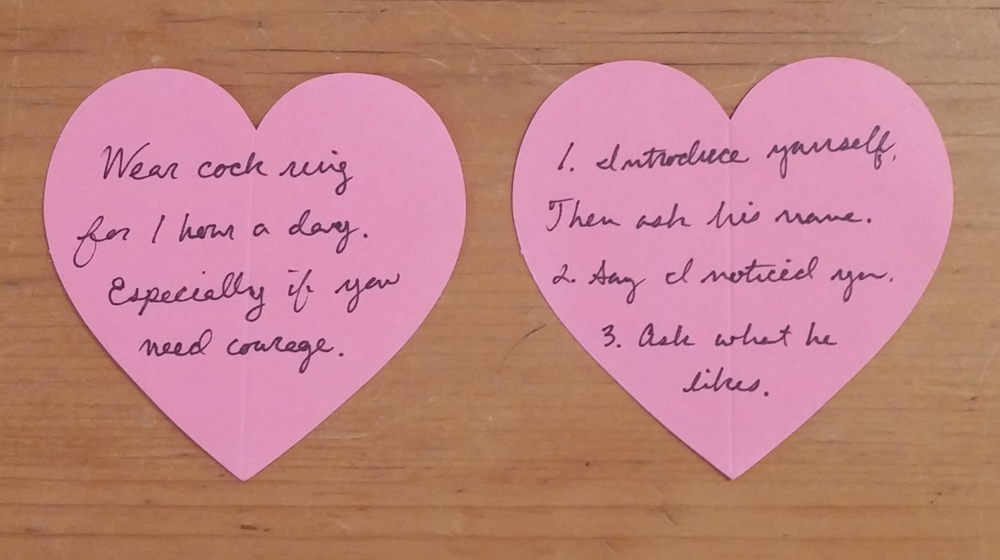 Wear cock ring
for 1 hour a day.
Especially if you
need courage.
1. Introduce yourself.
Then ask his name.
2. Say I noticed you.
3. Ask what he
likes.